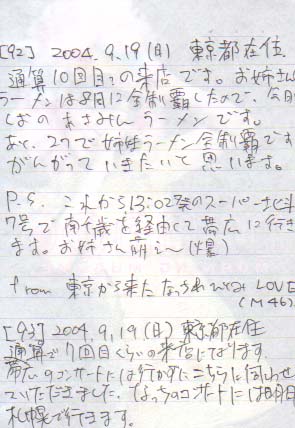 [92] 2004.9.19(日) 東京都在住
通算10回目の来店です。お姉さん
ラーメンは8月に全制覇したので、今日
しおのあさみんラーメンです。
あと、27で姉妹ラーメン全制覇です
がんがっていきたいと思います。
P.S. これから13:02発のスーパー北斗
7号で南千歳を経由して帯広に行き
ます。お姉さん萌え〜(爆)
from 東京から来た なっちゃ LOVE
(M46)
[93] 2004.9.19(日) 東京都在住
通算で7回目くらいの来店になります。
帯広のコンサートには行かずにこちらに伺わせ
ていただきました。なっちのコンサートには明日
札幌で行きます。